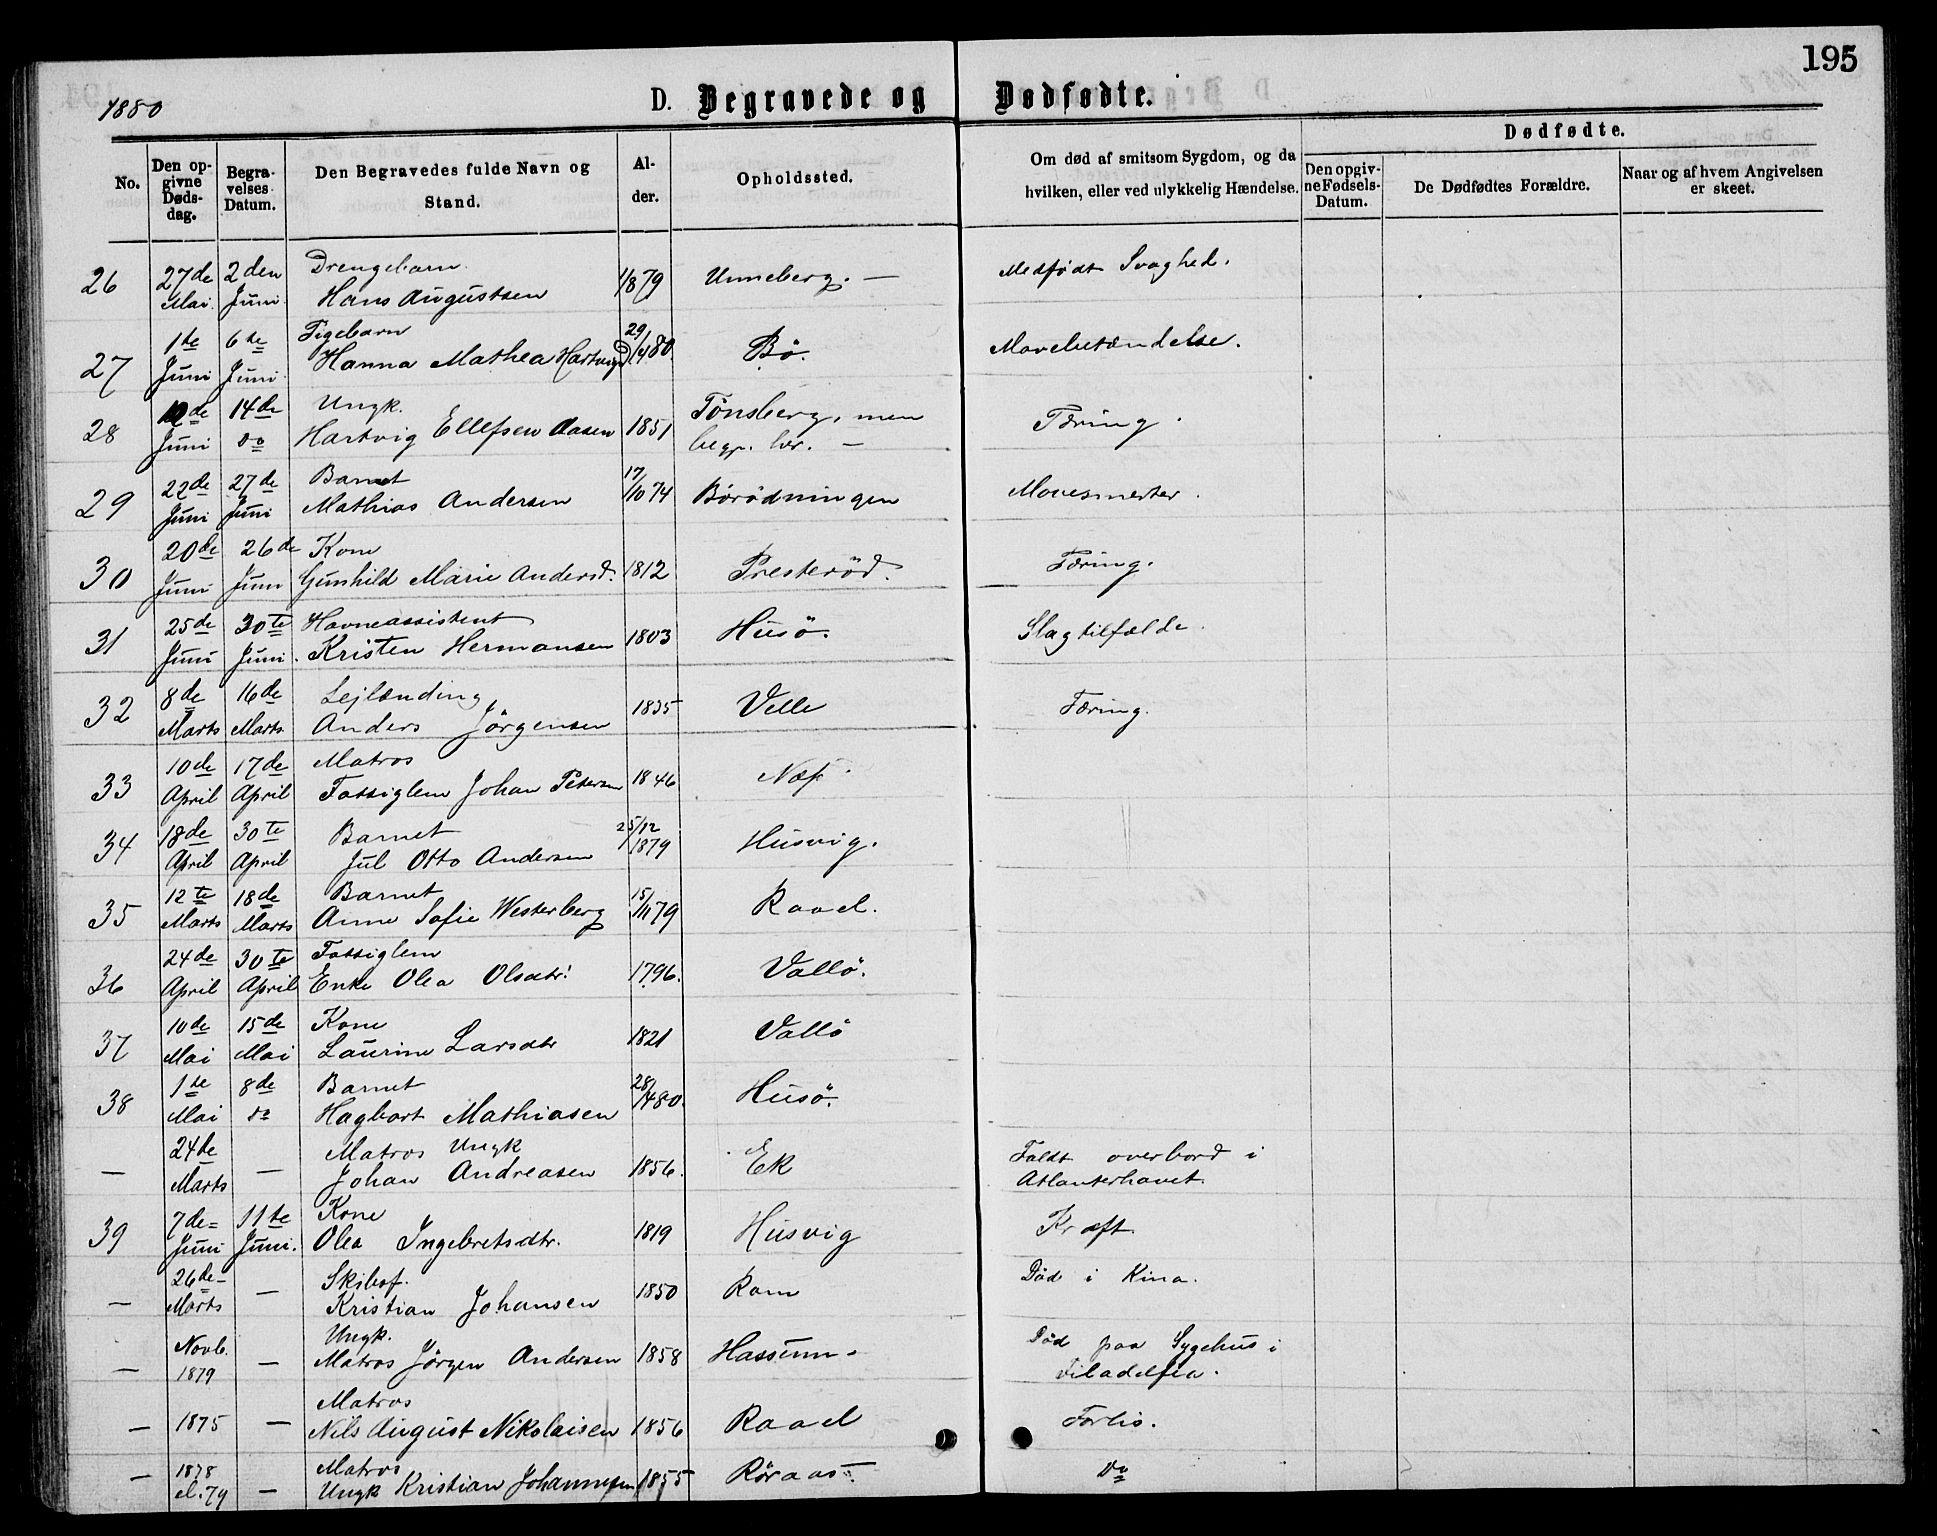 195
1880
D. Begravede og Dødfødte.
No.
Den opgivne Dødsdag.
Begravelses Datum.
Den Begravedes fulde Navn og Stand.
Alder.
Opholdssted.
Om død af smitsom Sygdom, og da hvilken, eller ved ulykkelig Hændelse.
Dødfødte.
Den opgivne Fødsels-Datum.
De Dødfødtes Forældre.
Naar og af hvem Angivelsen er skeet.
26 27de Mai 2den Juni Drengebarn Hans Augustsen 1/8 79 Unneberg. — Medfødt Svaghed.
27 1te Juni 6te Juni Pigebarn Hanna Mathea Hartvigsd. 29/4 80. Bø. Mavebetændelse.
28 12de Juni 14de do Ungk. Hartvig Ellefsen Aasen 1851 Tönsberg, men begr. her. — Tæring.
29 22de Juni 27de Juni Barnet Mathias Andersen 17/10 74 Börödningen Mavesmerter.
30 20de Juni 26de Juni Kone Gunhild Marie Andersd. 1812 Presteröd. Tæring.
31 25de Juni 30te Juni. Havneassistent Kristen Hermansen 1803 Husö. Slagtilfælde.
32 8de Marts 16de Marts Lejlænding Anders Jörgensen 1835 Velle Tæring.
33 10de April 17de April Matros Fattiglem Johan Petersen 1846 Næs
34 18de April 30te April Barnet Jul Otto Andersen 25/12 1879 Husvig.
35 12te Marts 18de Marts Barnet Anne Sofie Westerberg 15/11 79 Rael.
36 24de April 30te April Fattiglem Enke Olea Olsdtr. 1796. Vallö.
37 10de Mai 15de Mai Kone Laurine Larsdtr 1821 Vallö
38 1te Mai 8de do Barnet Hagbart Mathiasen 28/4 80. Husö.
— 24de Marts — Matros Ungk Johan Andreasen 1856. Ek Faldt overbord i Atlanterhavet.
39 7de Juni 11te Juni. Kone Olea Ingebretsdtr. 1819 Husvig Kræft.
— 26de Marts — Skibsf. Kristian Johansen 1850 Ram Död i Kina.
— Novb. 1879 — Ungk. Matros Jörgen Andersen 1858 Hassum. Död paa Sygehus i Filadelfia.
— 1875 — Matros Nils August Nikolaisen 1856 Raael Forlis.
— 1878 el. 79 — Matros Ungk Kristian Johannesen 1855 Röraas. do